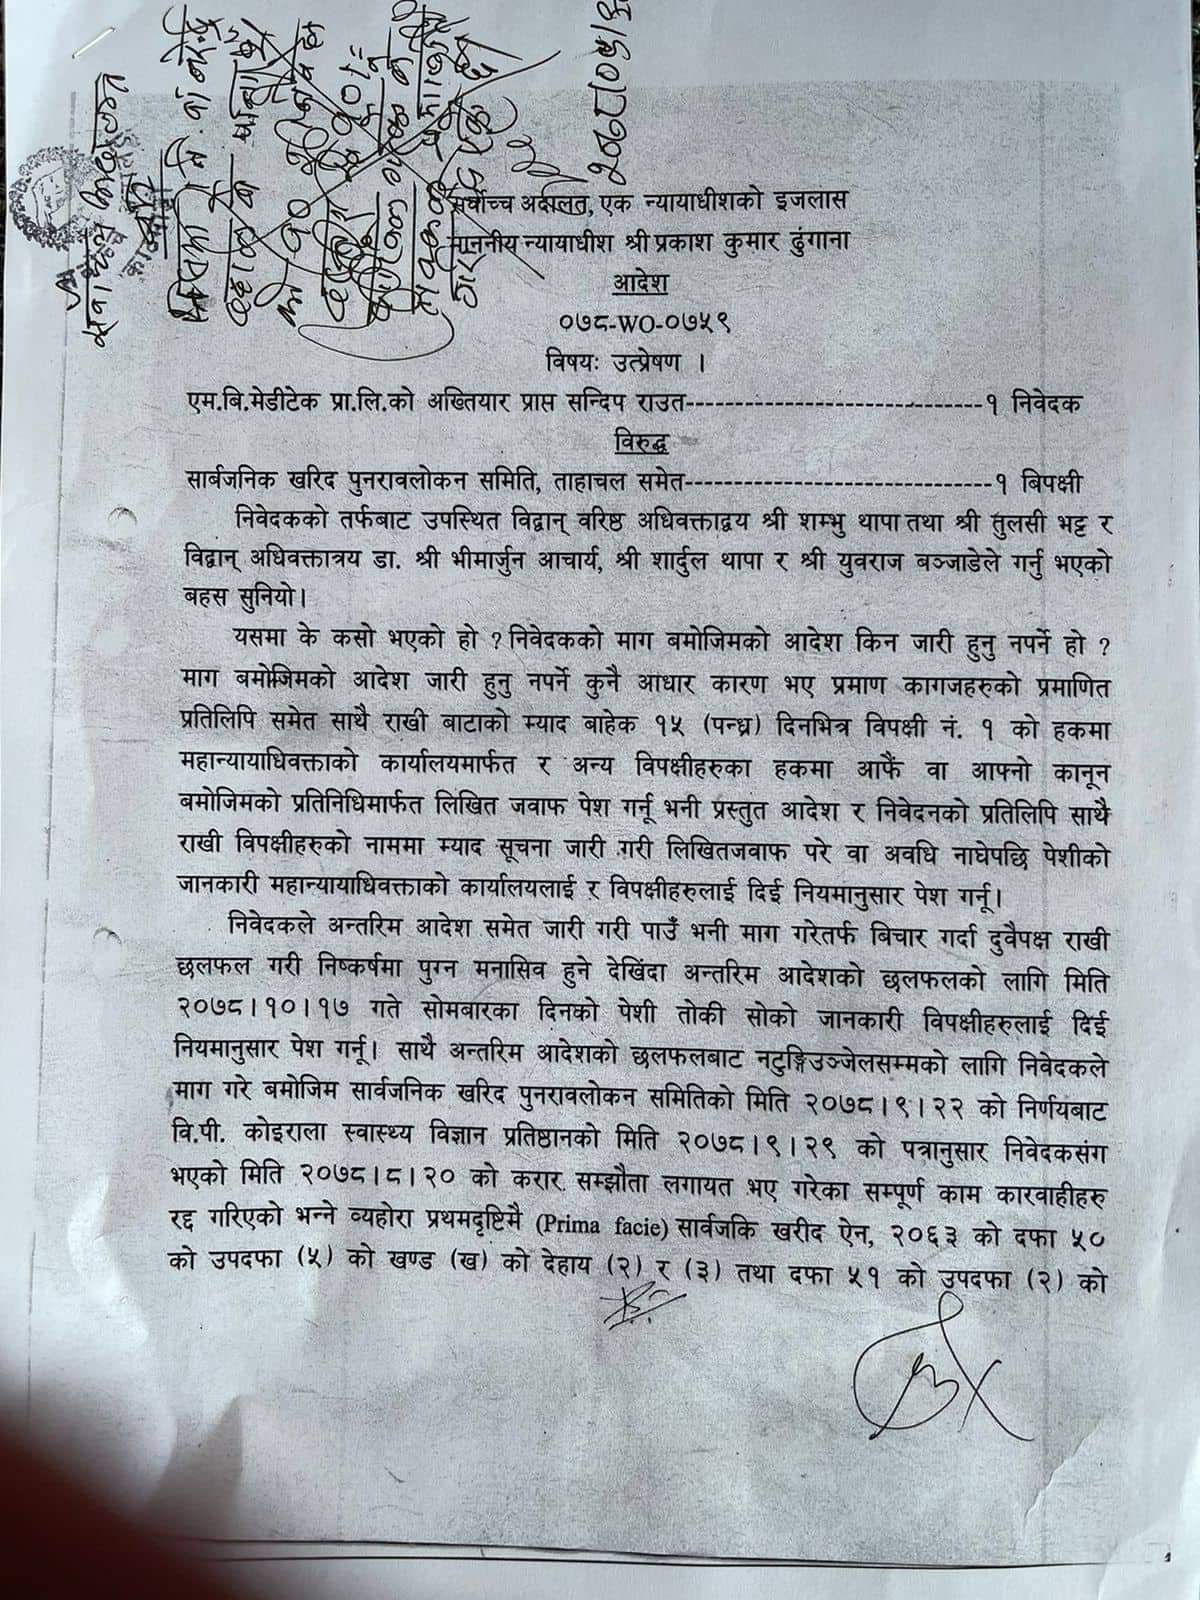 सर्वोच्च अदालत, एक न्यायाधीशको इजलास
माननीय न्यायाधीश श्री प्रकाश कुमार ढुंगाना
आदेश
०७८-WO-०७५९
विषयः उत्प्रेषण ।
एम.बि.मेडीटेक प्रा.लि.को अख्तियार प्राप्त सन्दिप राउत------------------------------१ निवेदक
विरुद्ध
सार्बजनिक खरिद पुनरावलोकन समिति, ताहाचल समेत------------------------------१ बिपक्षी
निवेदकको तर्फबाट उपस्थित विद्वान् वरिष्ठ अधिवक्ताद्वय श्री शम्भु थापा तथा श्री तुलसी भट्ट र
विद्वान् अधिवक्तात्रय डा. श्री भीमार्जुन आचार्य, श्री शार्दुल थापा र श्री युवराज बञ्जाडेले गर्नु भएको
बहस सुनियो।
यसमा के कसो भएको हो ? निवेदकको माग बमोजिमको आदेश किन जारी हुनु नपर्ने हो ?
माग बमोजिमको आदेश जारी हुनु नपर्ने कुनै आधार कारण भए प्रमाण कागजहरुको प्रमाणित
प्रतिलिपि समेत साथै राखी बाटाको म्याद बाहेक १५ (पन्ध्र) दिनभित्र विपक्षी नं. १ को हकमा
महान्यायाधिवक्ताको कार्यालयमार्फत र अन्य विपक्षीहरुका हकमा आफैं वा आफ्नो कानून
बमोजिमको प्रतिनिधिमार्फत लिखित जवाफ पेश गर्नू भनी प्रस्तुत आदेश र निवेदनको प्रतिलिपि साथै
राखी विपक्षीहरुको नाममा म्याद सूचना जारी गरी लिखितजवाफ परे वा अवधि नाघेपछि पेशीको
जानकारी महान्यायाधिवक्ताको कार्यालयलाई र विपक्षीहरुलाई दिई नियमानुसार पेश गर्नू।
निवेदकले अन्तरिम आदेश समेत जारी गरी पाउँ भनी माग गरेतर्फ बिचार गर्दा दुवैपक्ष राखी
छलफल गरी निष्कर्षमा पुग्न मनासिव हुने देखिंदा अन्तरिम आदेशको छलफलको लागि मिति
२०७८।१०।१७ गते सोमबारका दिनको पेशी तोकी सोको जानकारी विपक्षीहरुलाई दिई
नियमानुसार पेश गर्नू। साथै अन्तरिम आदेशको छलफलबाट नटुङ्गिउञ्जेलसम्मको लागि निवेदकले
माग गरे बमोजिम सार्वजनिक खरिद पुनरावलोकन समितिको मिति २०७८।९।२२ को निर्णयबाट
वि.पी. कोइराला स्वास्थ्य विज्ञान प्रतिष्ठानको मिति २०७८।९।२९ को पत्रानुसार निवेदकसंग
भएको मिति २०७८।८।२० को करार सम्झौता लगायत भए गरेका सम्पूर्ण काम कारवाहीहरु
रद्द गरिएको भन्ने व्यहोरा प्रथमदृष्टिमै (Prima facie) सार्वजकि खरीद ऐन, २०६३ को दफा ५०
को उपदफा (५) को खण्ड (ख) को देहाय (२) र (३) तथा दफा ५१ को उपदफा (२) को
1